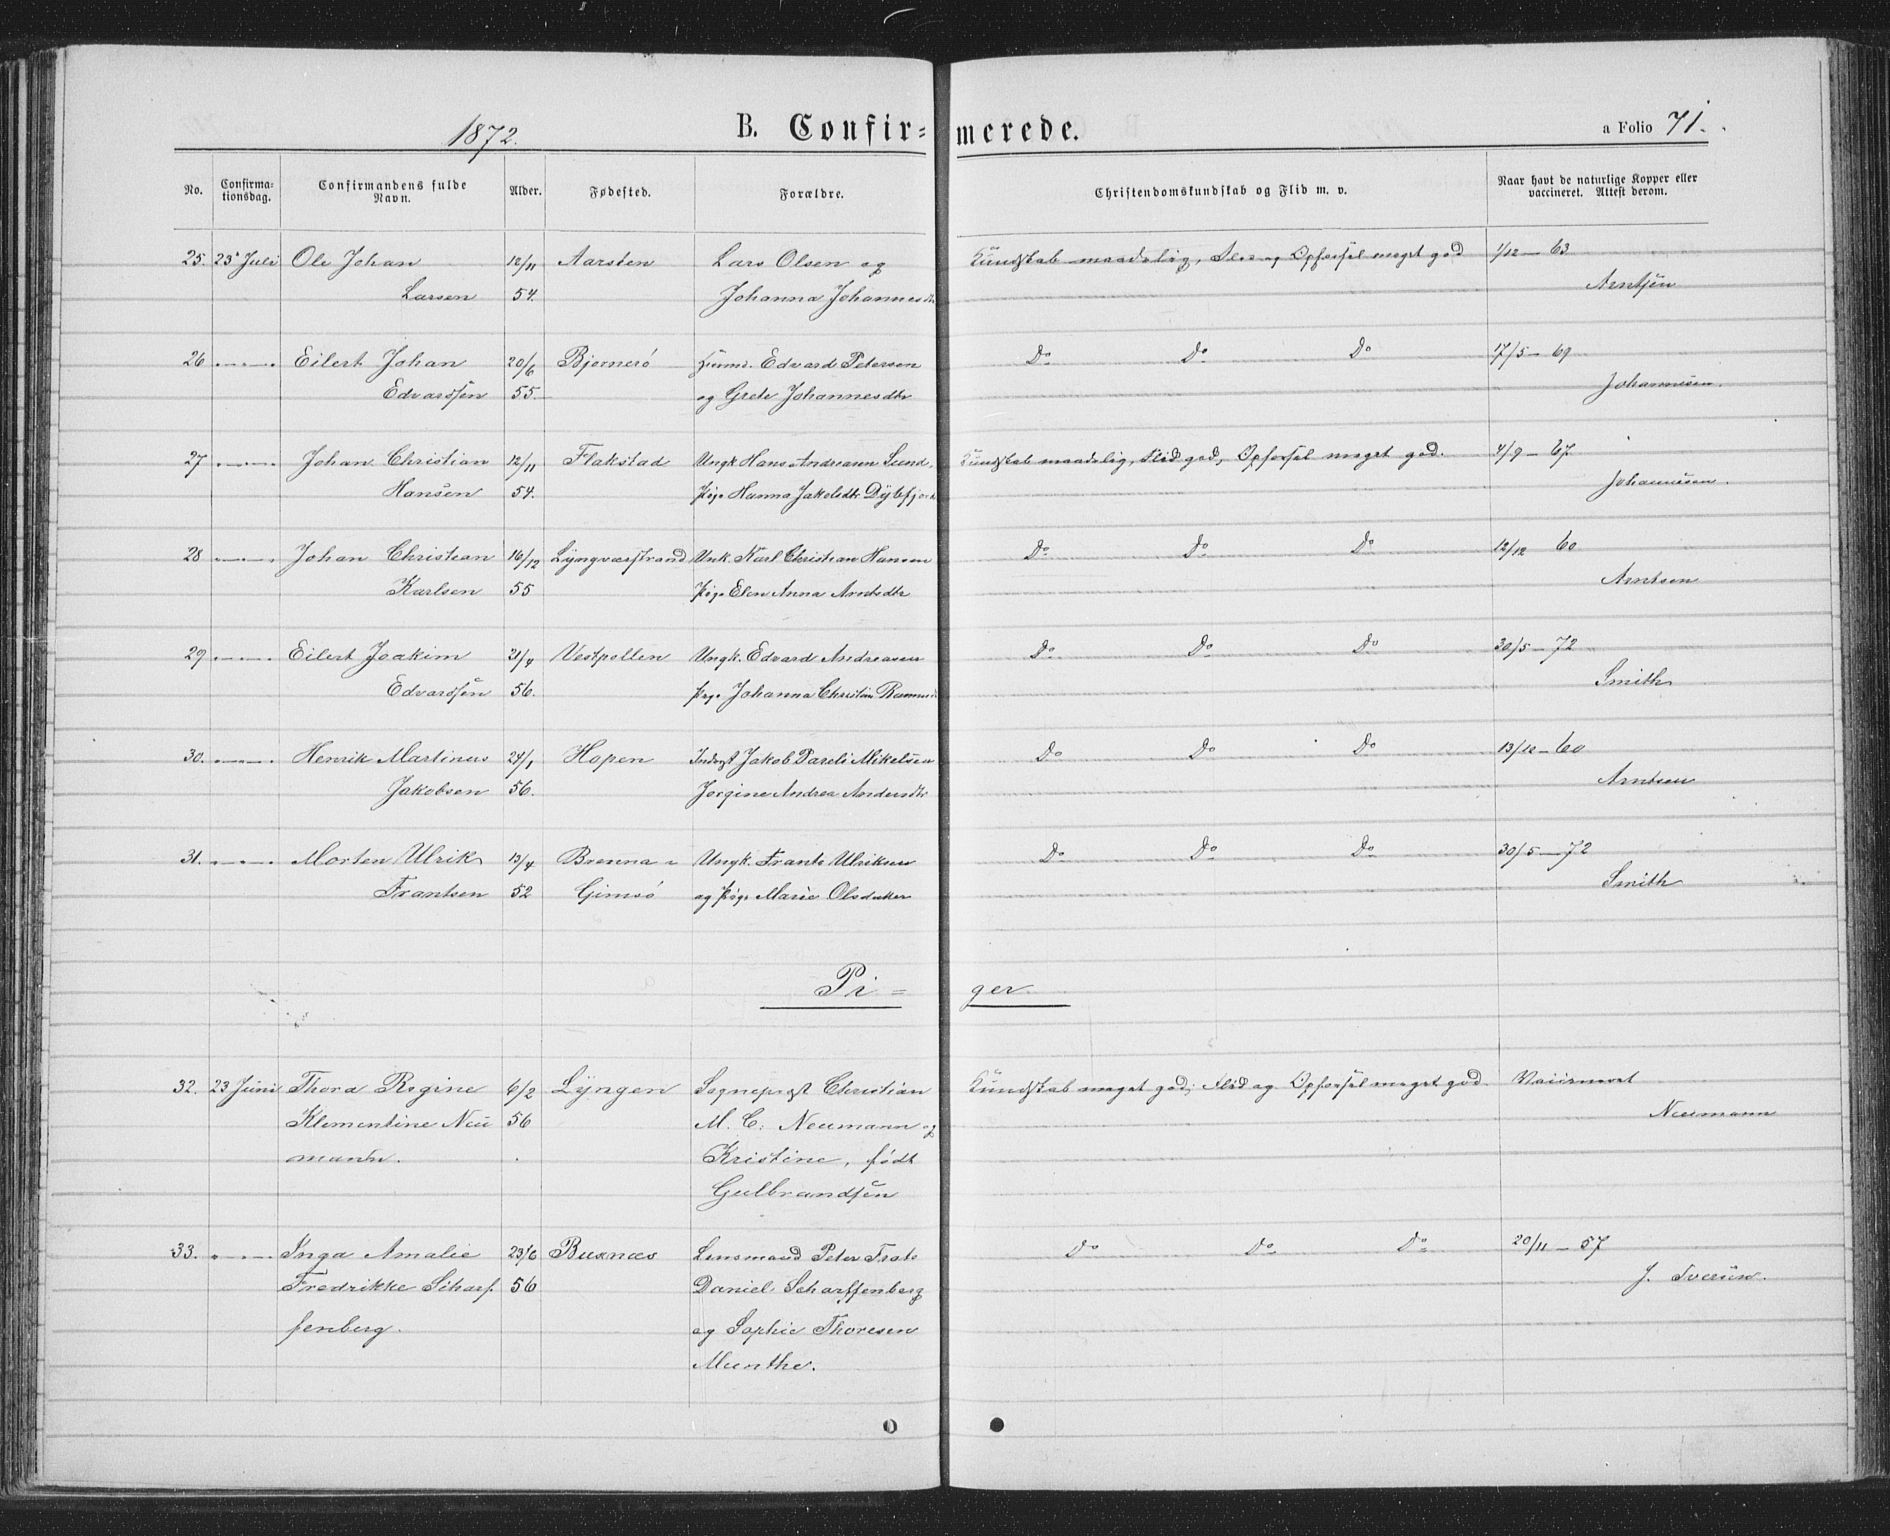 1872. B. Confir= merede. a Folio 71.
No. Confirma- tionsdag. Confirmandens fulde Navn. Alder. Fødested. Forældre. Christendomskundskab og Flid m. v. Naar havt de naturlige Kopper eller vaccineret. Attest derom.
25. 23 Juli Ole Johan 12/11 Aarsten Lars Olsen og Kundskab maadelig, Flid og Opførsel meget god 1/12 - 63
Larsen 54. Johanna Johannesdtr Arntsen
26 Eilert Johan 20/6 Bjørnerö Huusm. Edvard Petersen Do Do Do 17/5 - 69
Edvardsen 55. og Grete Johannesdtr Johannesen.
27 Johan Christian 12/11 Flakstad Ungk. Hans Andreasen Sund, Kundskab maadelig, Flid god, Opførsel meget god. 4/9 - 67
Hansen 54. Pige Hanna Jakobsdtr Johannesen.
28 Johan Christian 16/12 Lyngværstrand Unk. Karl Christian Hansen Do Do Do 12/12 60
Karlsen 55 Pige Elen Anna Arntsdtr Arntsen
29 Eilert Joakim 21/4 Vestpollen Ungk. Edvard Andreasen Do Do Do 30/5 - 72
Edvardsen 56. Pige Johanna Christine Smith
30. Henrik Martinus 24/1 Hopen Inderst Jakob Pareli Mikelsen Do Do Do 13/12 - 60
Jakobsen 56. Jørgine Andrea Andersdtr Arntsen
31. Morten Ulrik 13/4 Brenna - Ungk. Frants Ulriksen Do Do Do 30/5 - 72
Frantsen 52 Gimsö og Pige Marie Olsdatter Smith
Pi= ger
32. 23 Juni Thora Regine 6/2 Lyngen Sogneprest Christian Kundskab meget god; Flid og Opførsel meget god
Klementine Neu 56 M. C. Neumann og Neumann
mann. Kristine, født
Gulbrandsen
33. Inga Amalie 23/6 Buxnæs Lensmand Peter Do Do Do 20/11 - 57
Fredrikke Scharf 56 Daniel Scharffenberg J.
fenberg. og Sophie Thoresen
Munthe.